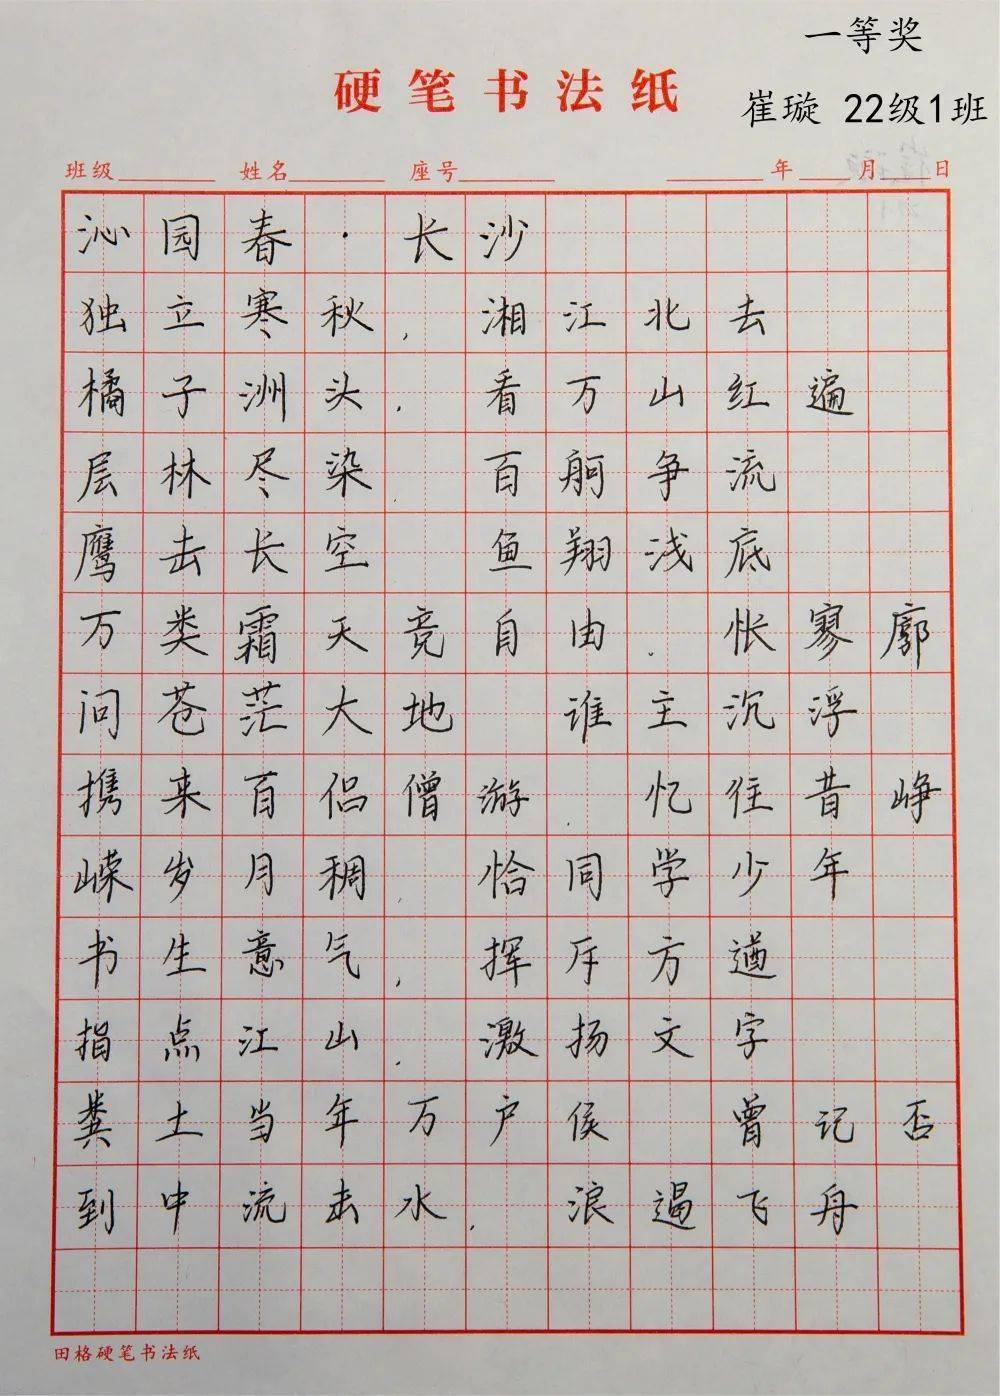 一等奖
硬笔书法纸
崔璇 22级1班
班级 姓名 座号 年 月 日
沁园春·长沙
独立寒秋,湘江北去
橘子洲头.看万山红遍
层林尽染 百舸争流
鹰击长空 鱼翔浅底
万类霜天竞自由.怅寥廓
问苍茫大地 谁主沉浮
携来百侣僧游.忆往昔峥
嵘岁月稠 恰同学少年
书生意气,挥斥方遒
指点江山.激扬文字
粪土当年万户侯 曾记否
到中流击水.浪遏飞舟
田格硬笔书法纸